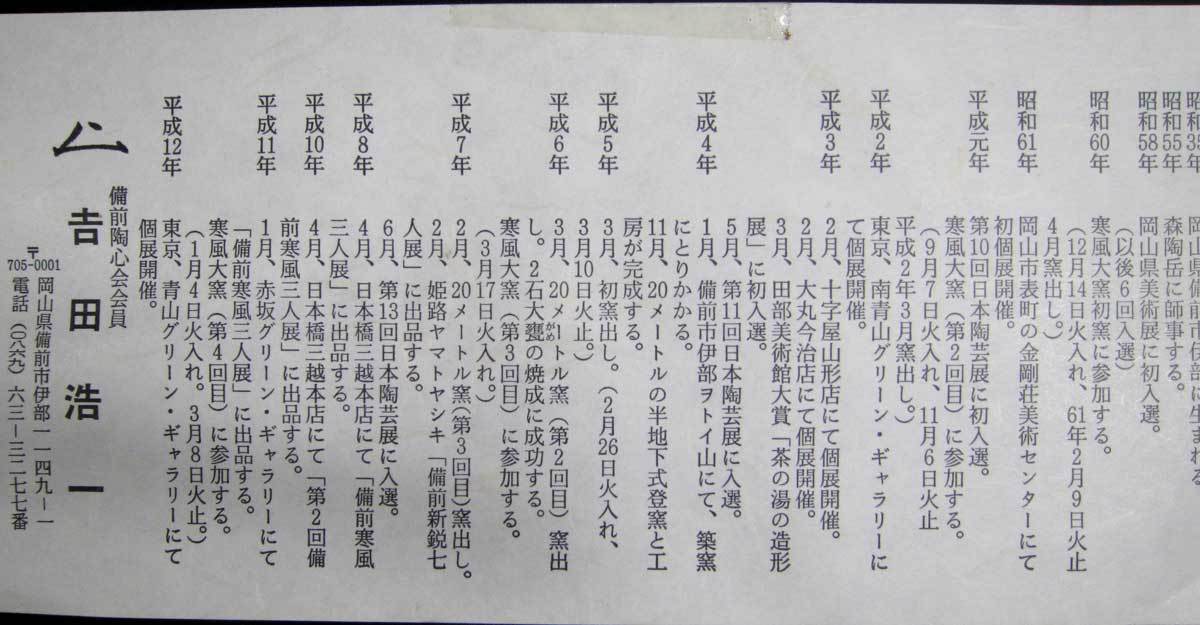 昭和35年 岡山県備前市伊部に生まれる
昭和55年 森陶岳に師事する。
昭和58年 岡山県美術展に初入選。
(以後6回入選)
昭和60年 寒風大窯初窯に参加する。
(12月14日火入れ、61年2月9日火止
4月窯出し。)
昭和61年 岡山市表町の金剛荘美術センターにて
初個展開催。
平成元年 第10回日本陶芸展に初入選。
寒風大窯(第2回目)に参加する。
(9月7日火入れ、11月6日火止
平成2年3月窯出し。)
平成2年 東京、南青山グリーン・ギャラリーに
て個展開催。
平成3年 2月、十字屋山形店にて個展開催。
2月、大丸今治店にて個展開催。
3月、田部美術館大賞「茶の湯の造形
展」に初入選。
5月、第11回日本陶芸展に入選。
平成4年 1月、備前市伊部ヲトイ山にて、築窯
にとりかかる。
11月、20メートルの半地下式登窯と工
房が完成する。
平成5年 3月、初窯出し。(2月26日火入れ、
3月10日火止。)
平成6年 3月、20メートル窯(第2回目)窯出
し。2石大甕がめの焼成に成功する。
寒風大窯(第3回目)に参加する。
(3月17日火入れ。)
平成7年 2月、20メートル窯(第3回目)窯出し。
2月、姫路ヤマトヤシキ「備前新鋭七
人展」に出品する。
6月、第13回日本陶芸展に入選。
平成8年 4月、日本橋三越本店にて「備前寒風
三人展」に出品する。
平成10年 4月、日本橋三越本店にて「第2回備
前寒風三人展」に出品する。
平成11年 1月、赤坂グリーン・ギャラリーにて
「備前寒風三人展」に出品する。
寒風大窯(第4回目)に参加する。
(1月4日火入れ。3月8日火止。)
平成12年 東京、青山グリーン・ギャラリーにて
個展開催。
備前陶心会会員
𠮷田浩一
〒705-0001 岡山県備前市伊部一一四九ー一
電話(〇八六九)六三ー三二七七番